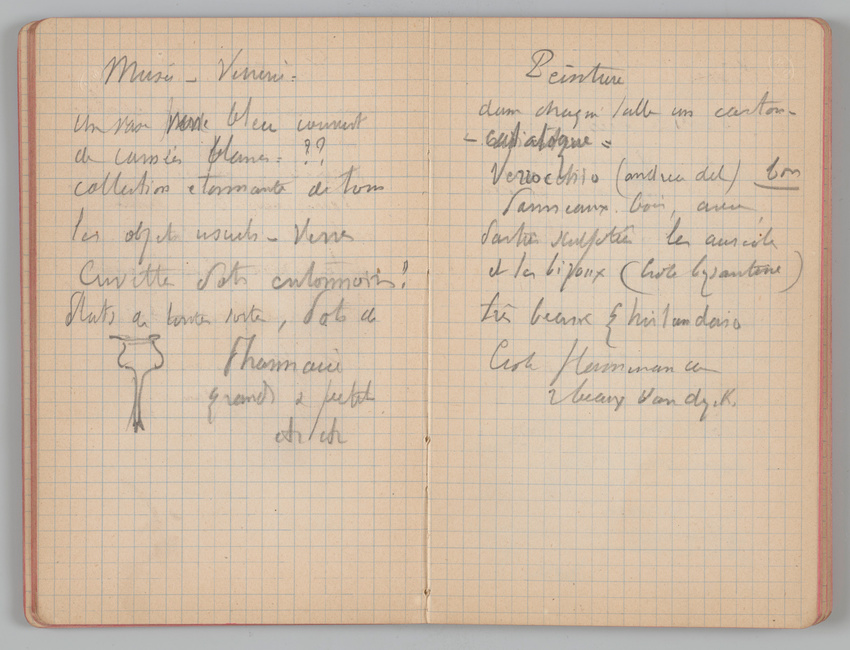 Musée - Verrerie -
un vase bleu couvert
de camées blancs = ??
collection étonnante de tous
les objets usuels - Verres
Cuvette Pots
Plats de toutes sortes, Pots de
Pharmacie
grands & petits
etc etc
Peinture
dans chaque salle un carton -
- catalogue =
Verrocchio (andrea del) bon
Panneaux bois, avec
partie sculptée les auréoles
et les bijoux (École bysantine)
très beaux Ghirlandaio
École flammande
2 beaux Van dyck.